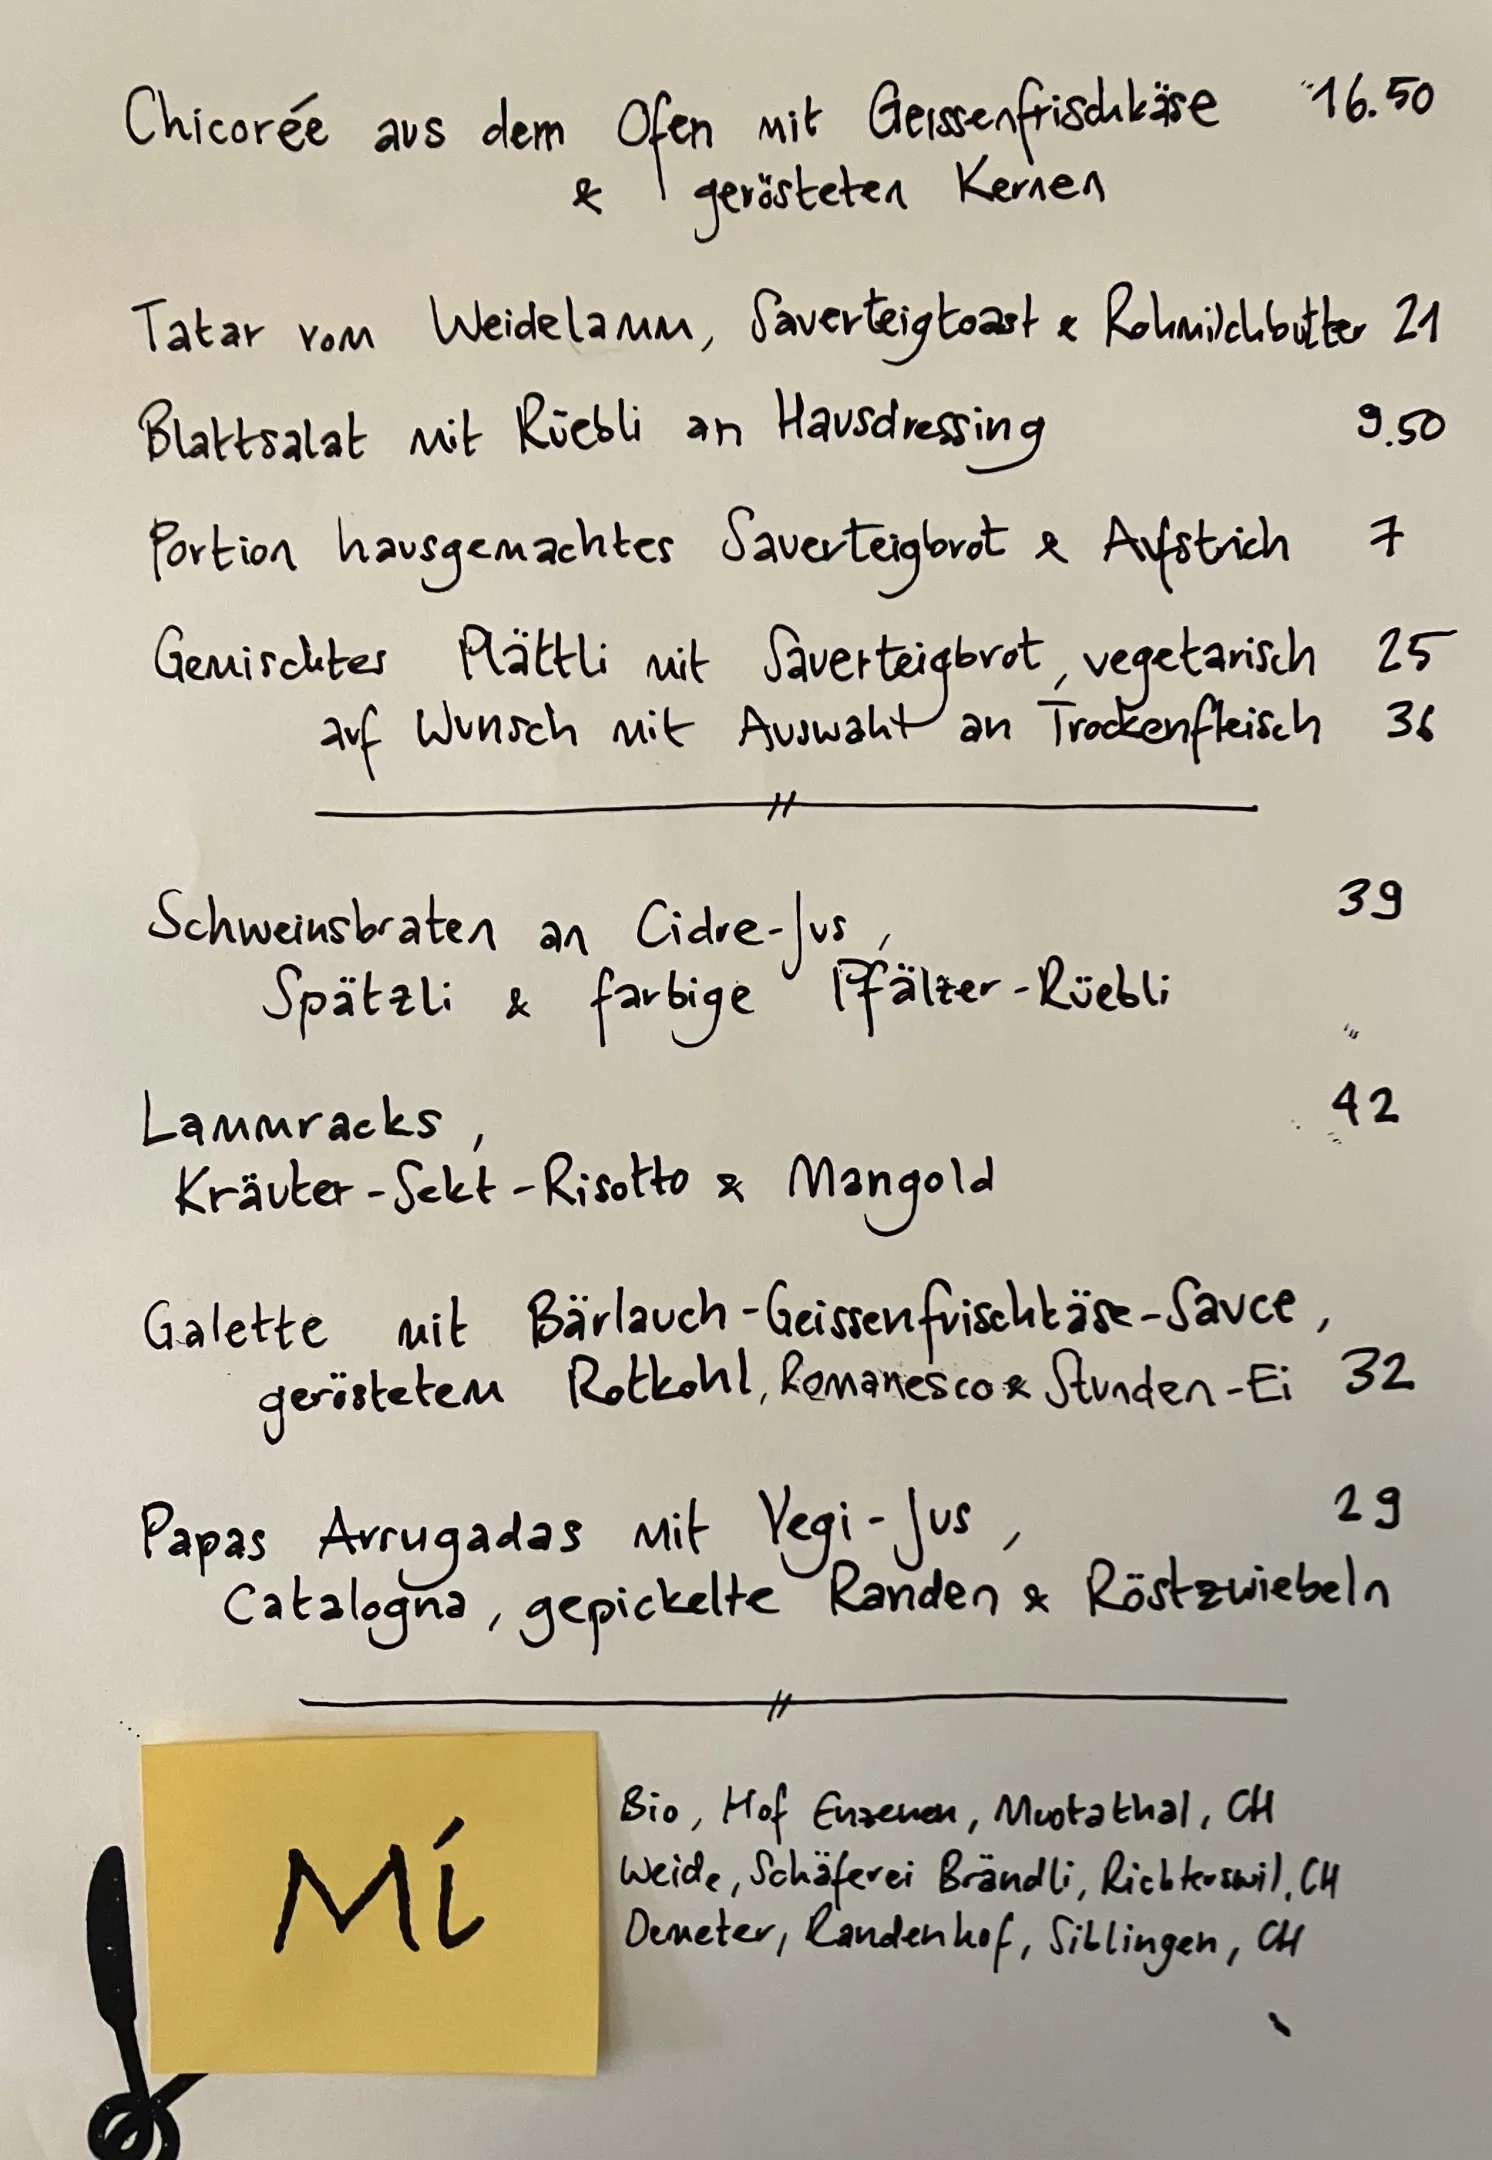 Chicorée aus dem Ofen mit Geissenfrischkäse 16.50
& gerösteten Kernen
Tatar vom Weidelamm, Sauerteigtoast & Rohmilchbutter 21
Blattsalat mit Rüebli an Hausdressing 9.50
Portion hausgemachtes Sauerteigbrot & Aufstrich 7
Gemischtes Plättli mit Sauerteigbrot, vegetarisch 25
auf Wunsch mit Auswahl an Trockenfleisch 36
Schweinsbraten an Cidre-Jus, 39
Spätzli & farbige Pfälzer-Rüebli
Lammracks, 42
Kräuter-Sekt-Risotto & Mangold
Galette mit Bärlauch-Geissenfrischkäse-Sauce,
geröstetem Rotkohl, Romanesco & Stunden-Ei 32
Papas Arrugadas mit Vegi-Jus, 29
Catalogna, gepickelte Randen & Röstzwiebeln
Mi
Bio, Hof Enzenen, Muotathal, CH
Weide, Schäferei Brändli, Richterswil, CH
Demeter, Randenhof, Siblingen, CH